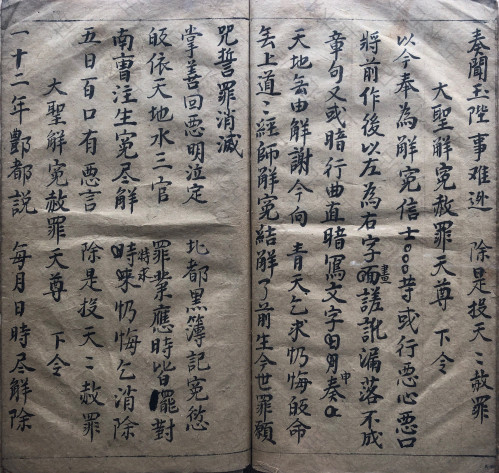 奏聞玉陛事难逃 除是投天〻赦罪
大聖解冤赦罪天尊 下令
以今奉為解冤信士○○○等或行悪心悪口
將前作後以左為右字畫差訛漏落不成
章句又或暗行曲直暗寫文字申奏
天地無由解謝今向 青天乞求忏悔皈命
無上道〻經師解冤結解了前生今世罪願
咒誓罪消滅
掌善回悪明泣定 北都黑簿記冤愆
皈依天地水三官 罪業應時皆罷對
南曹注生冤尽解 特求忏悔乞消除
五日百口有悪言 除是投天〻赦罪
大聖解冤赦罪天尊 下令
一十二年酆都説 每月日時尽解除